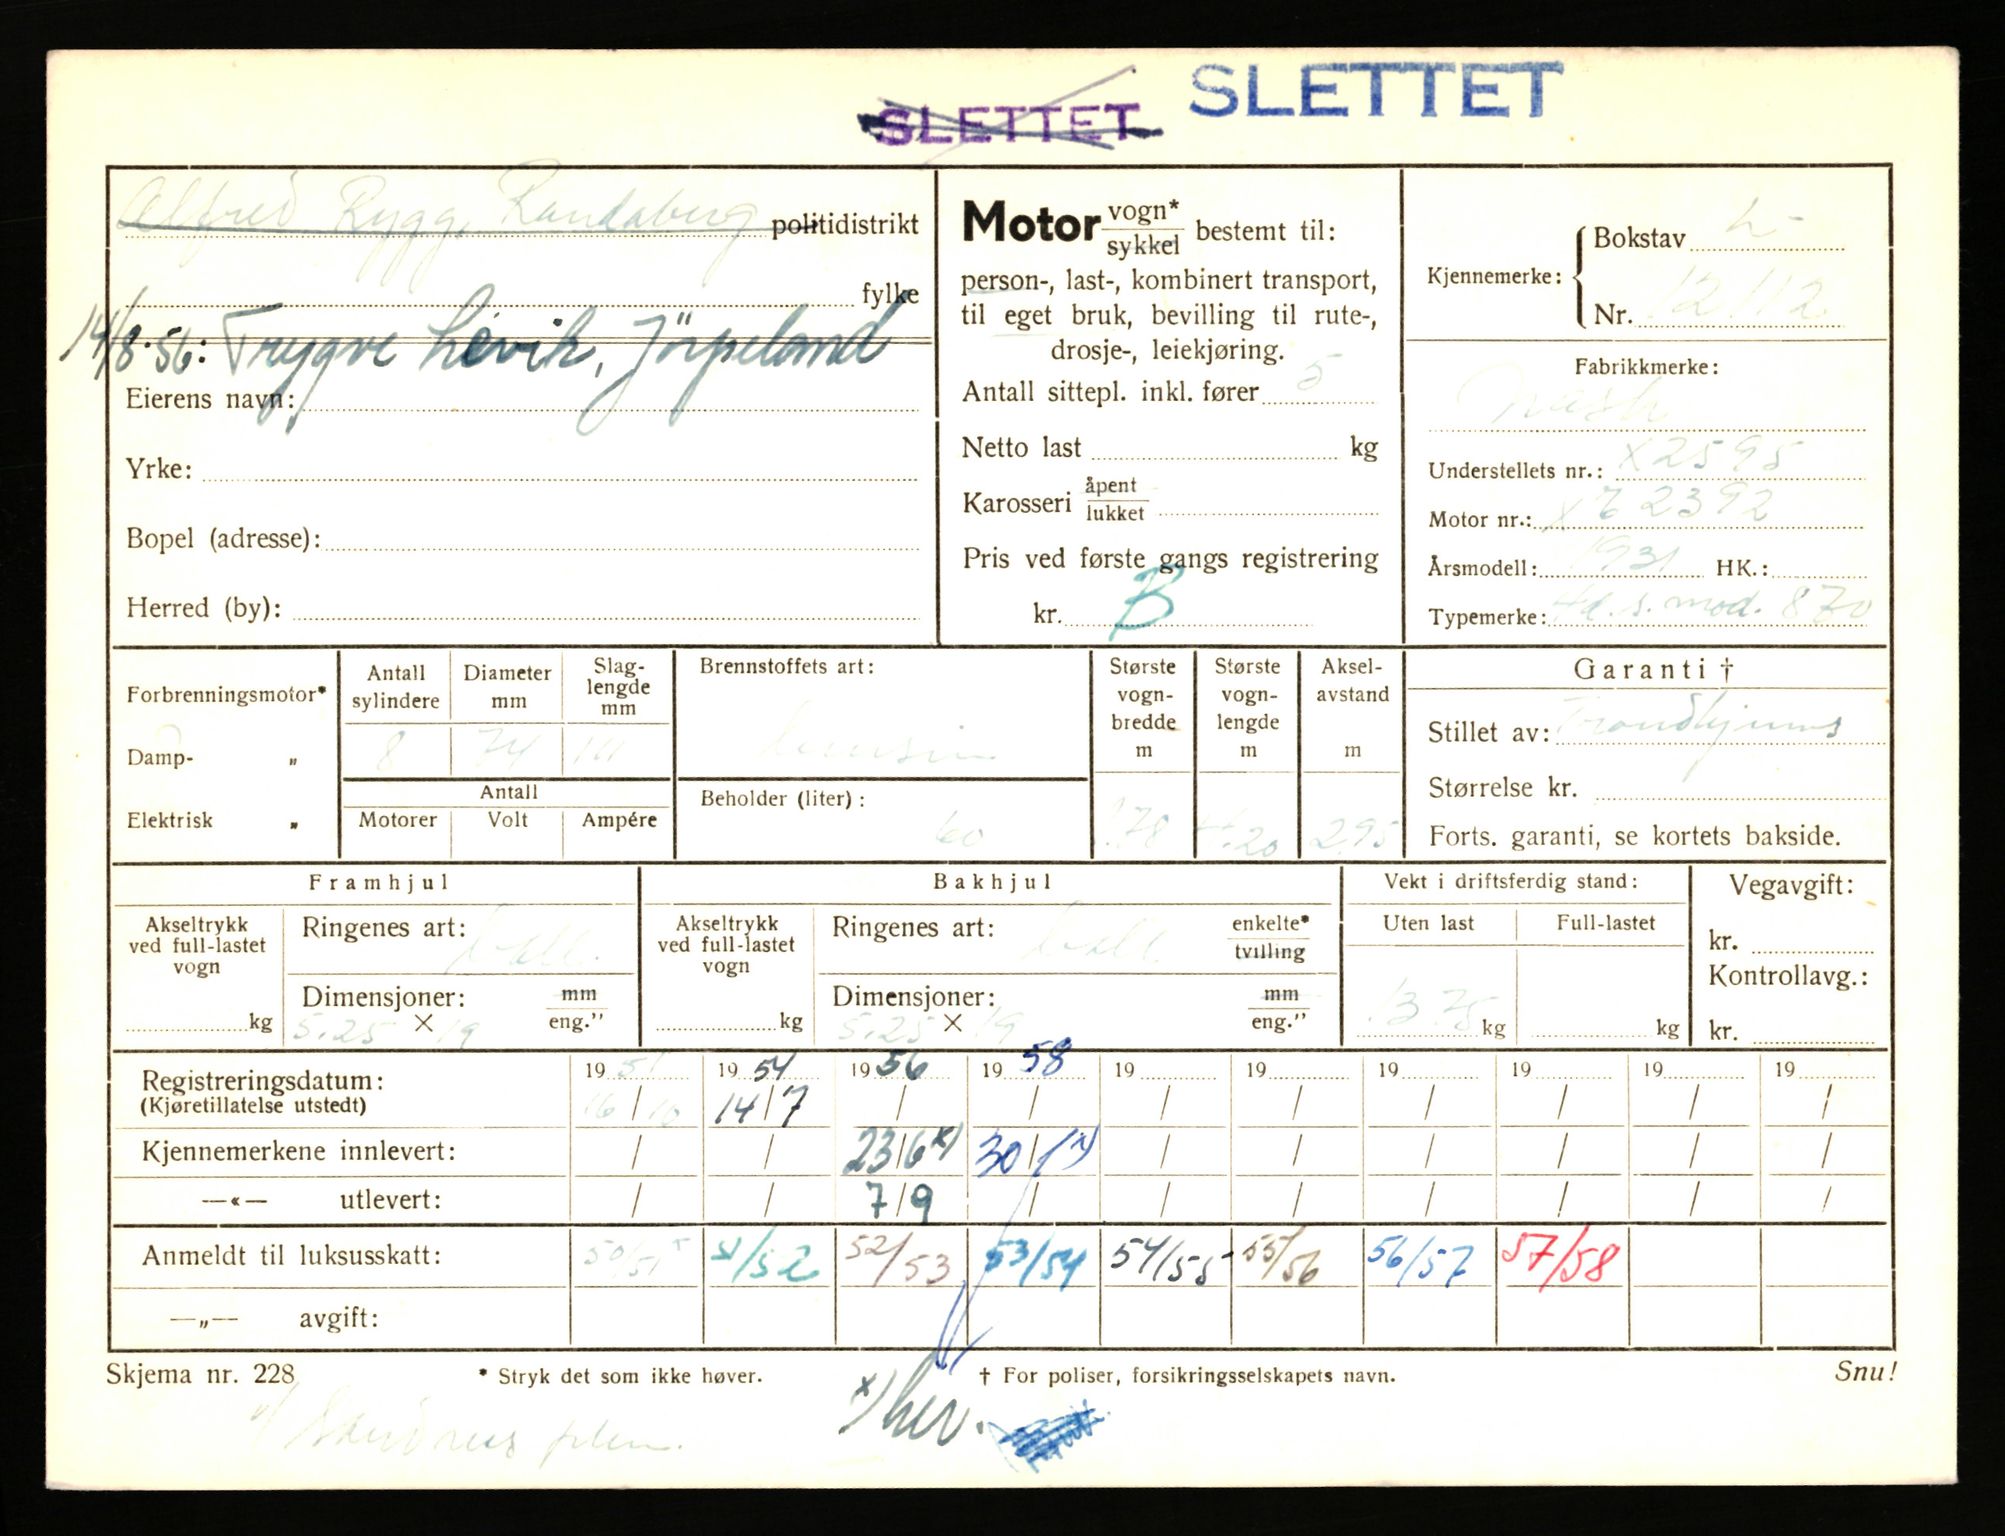 SLETTET SLETTET
Alfred Rygg, Randaberg politidistrikt
fylke
14/8-56: Trygve Lévik, Jörpeland
Eierens navn:
Yrke:
Bopel (adresse):
Herred (by):
Motor vogn* / sykkel bestemt til:
person-, last-, kombinert transport,
til eget bruk, bevilling til rute-,
drosje-, leiekjøring.
Antall sittepl. inkl. fører 5
Netto last kg
Karosseri åpent / lukket
Pris ved første gangs registrering
kr. B
Kjennemerke: Bokstav L
Nr. 12112
Fabrikkmerke:
Nash
Understellets nr.: X2595
Motor nr.: 2392
Årsmodell: 1931 HK.:
Typemerke: mod. 870
Forbrenningsmotor*
Damp- „
Elektrisk „
Antall sylindere Diameter mm Slag-lengde mm
8 74 111
Antall
Motorer Volt Ampére
Brennstoffets art:
bensin
Beholder (liter): 60
Største vogn-bredde m
1.78
Største vogn-lengde m
4.20
Aksel-avstand m
2.95
Garanti †
Stillet av: Trondhjems
Størrelse kr.
Forts. garanti, se kortets bakside.
Framhjul
Akseltrykk ved full-lastet vogn
kg
Ringenes art: ball.
Dimensjoner: mm / eng."
5.25 × 19
Bakhjul
Akseltrykk ved full-lastet vogn
kg
Ringenes art: ball enkelte* / tvilling
Dimensjoner: mm / eng."
5.25 × 19
Vekt i driftsferdig stand:
Uten last Full-lastet
1375 kg kg
Vegavgift:
kr.
Kontrollavg.:
kr.
Registreringsdatum: 1951 1954 1956 1958 19 19 19 19 19 19
(Kjøretillatelse utstedt) 16/10 14/7 / / / / / / / /
Kjennemerkene innlevert: / / 23/6 x) 30/1 x) / / / / / /
—«— utlevert: / / 7/9 / / / / / / /
Anmeldt til luksusskatt: 50/51 51/52 52/53 53/54 54/55 55/56 56/57 57/58
—„— avgift:
Skjema nr. 228 * Stryk det som ikke høver. † For poliser, forsikringsselskapets navn. Snu!
x) her.